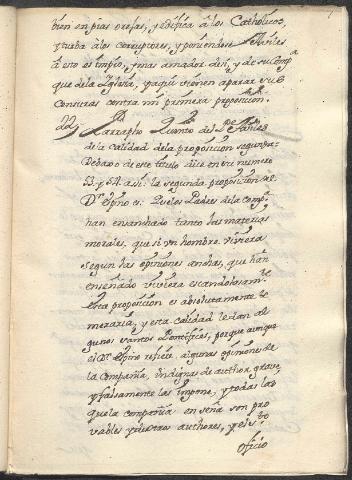 bien en pias orejas, y edifica â los Catholicos,
y turba â los corruptores, y poniendose
â esto es impio, y mas amador de si, y de su Comp.ª
que de la Yglesia, y aqui vienen aparar sus
Censuras contra mi primera proposicion.
Parrapho Quinto del Pe.
de la calidad dela proposicion segunda.
Debaxo de este titulo dice en su numero
53. y 54. assi. la segunda proposicion de
Dr. espino es: Que los Padres dela comp.ª
han ensanchado tanto las materias
morales, que si vn hombre viviera
segun las opiniones anchas, que han
enseñado viviera escandolosam.te
esta proposicion es absolutamente te
meraria, y esta calidad le dan al
gunos santos Pontifices, porque aunque
el Dr. espino refiere algunas opiniones de
la Compañia, indignas de author grave,
y falsamente las impone, y todas las
que la compañia enseña son pro
vables y de otros authores, y el s.to
oficio